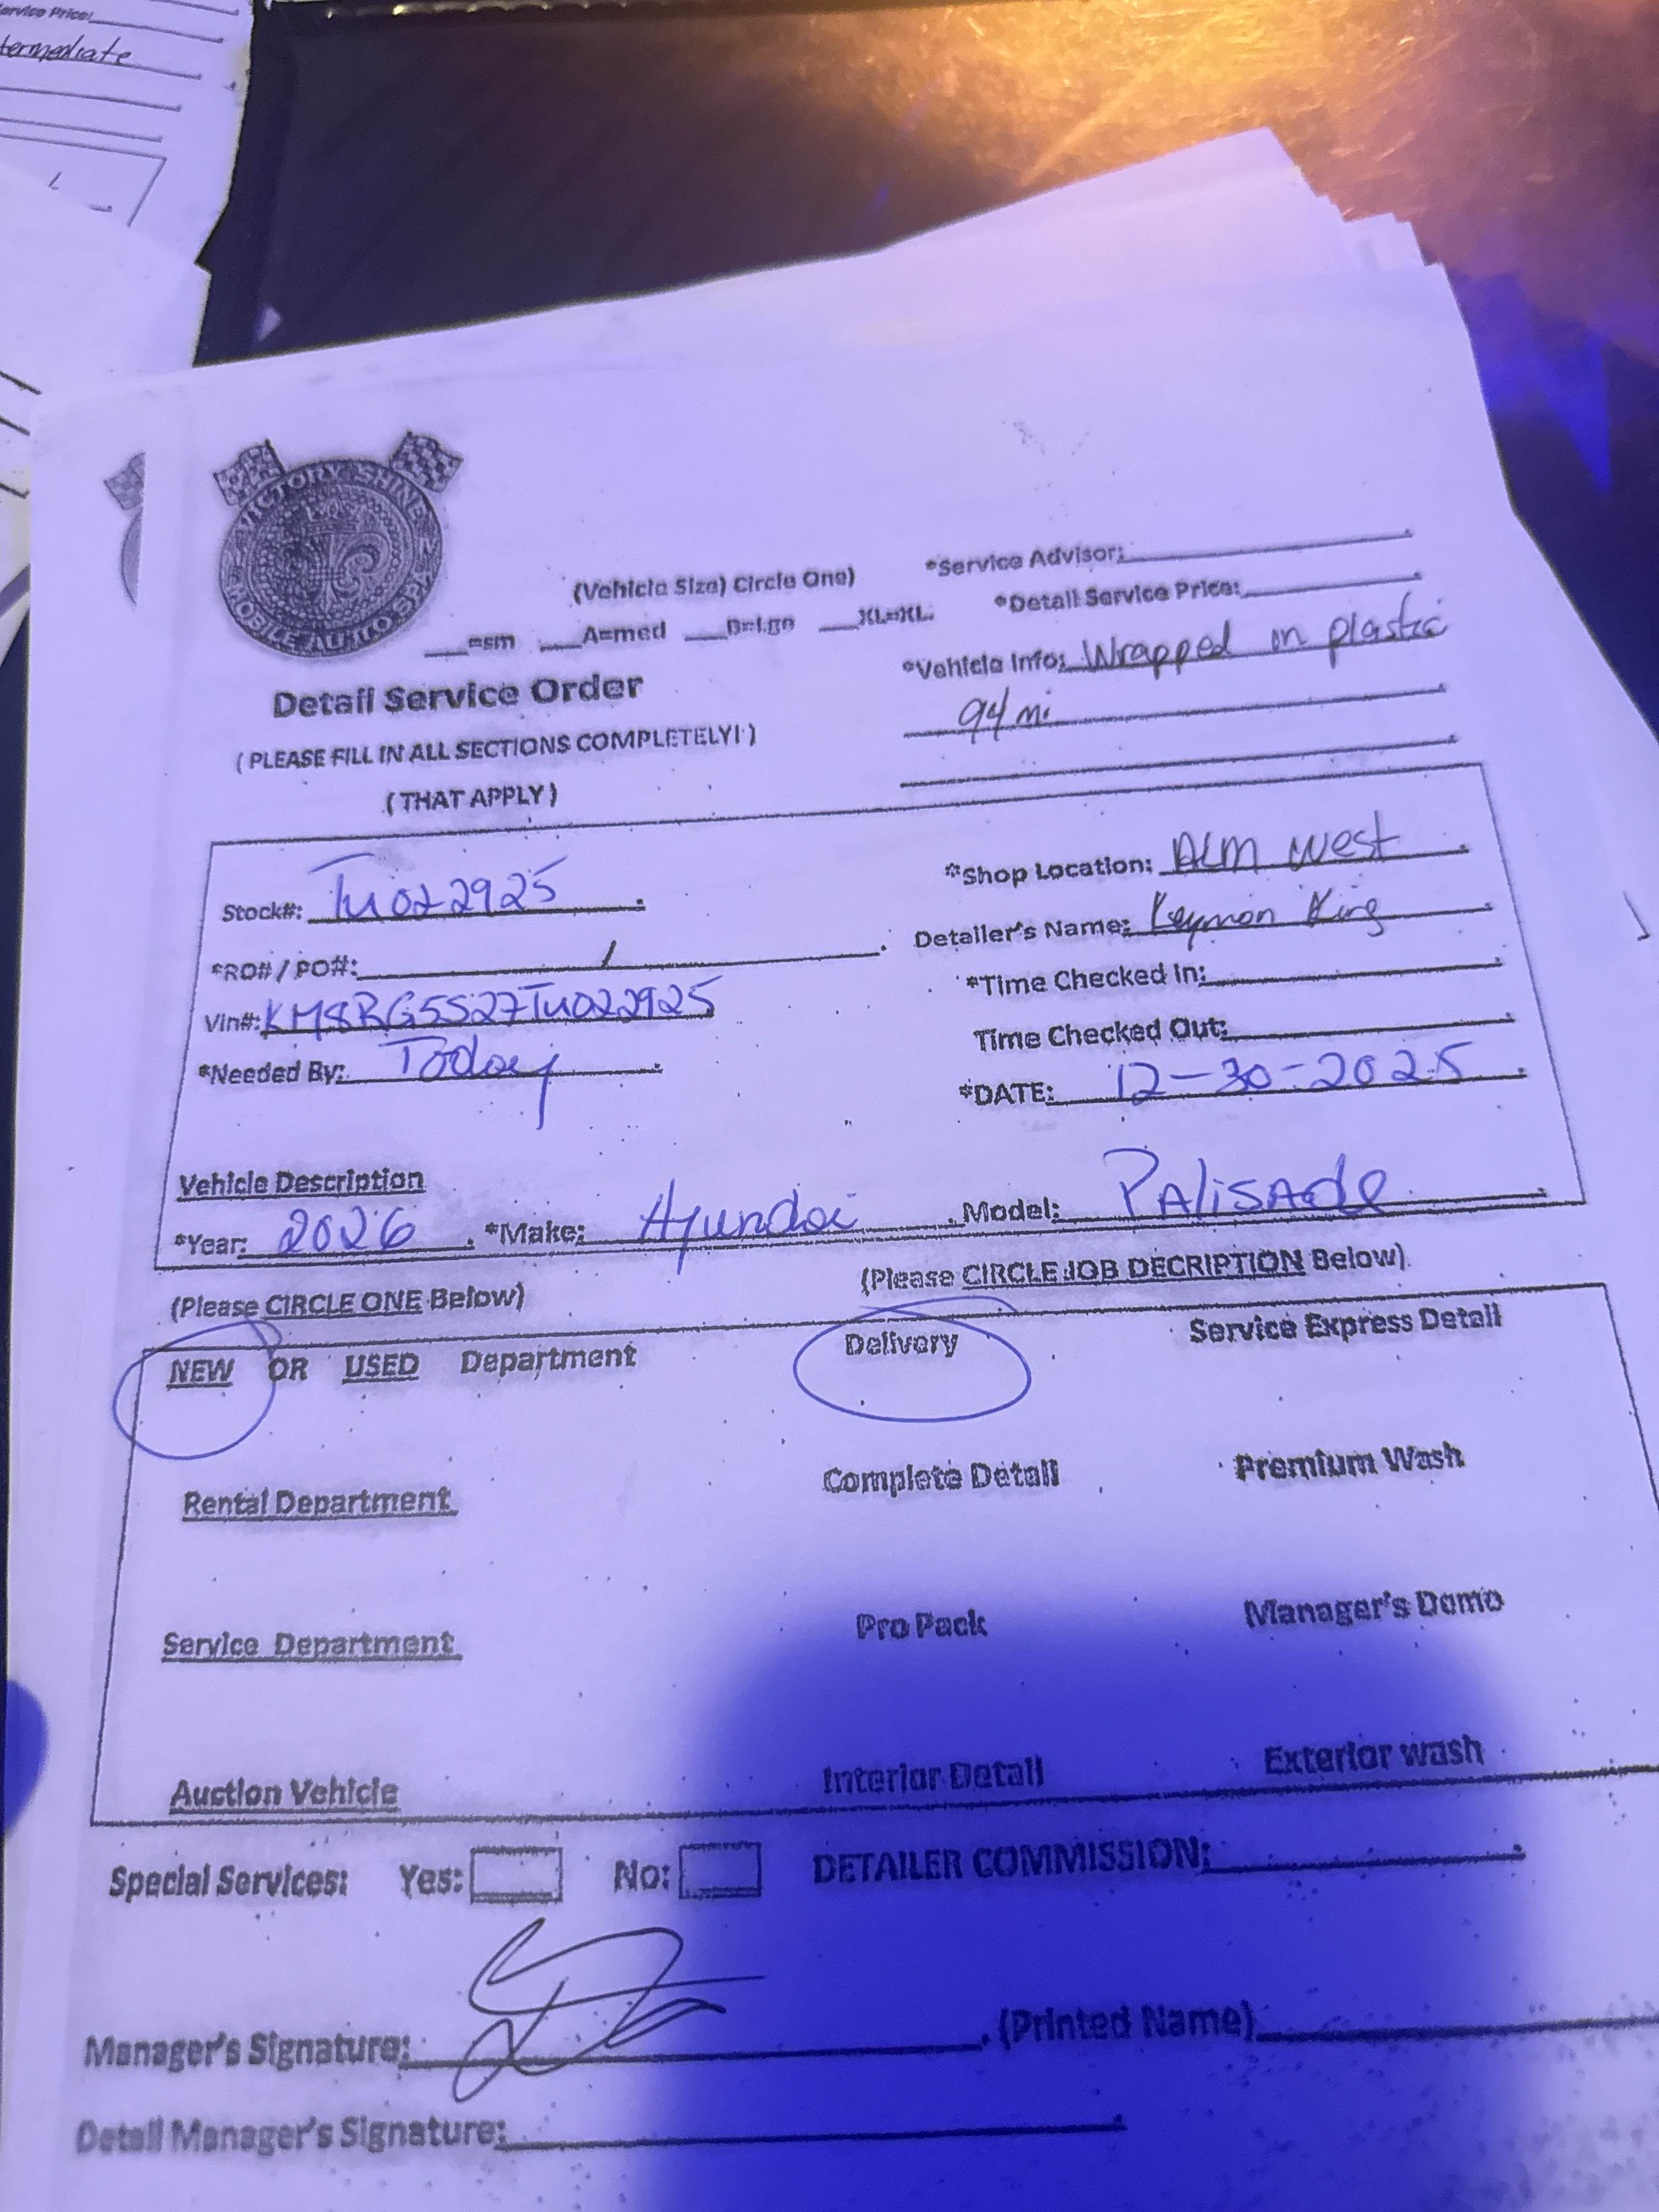 ervice Price:
termediate
VICTORY SHINE
MOBILE AUTO SPA
(Vehicle Size) Circle One)
*Service Advisor:
__=sm __A=med __B=Lge __XL=XL.
*Detail Service Price:
Detail Service Order
*Vehicle Info: Wrapped in plastic
94 mi
( PLEASE FILL IN ALL SECTIONS COMPLETELY! )
( THAT APPLY )
Stock#: TU022925
*Shop Location: ALM West
*RO# / PO#: /
Detailer's Name: Keymon King
Vin#: KM8RG5S27TU022925
*Time Checked In:
*Needed By: Today
Time Checked Out:
*DATE: 12-30-2025
Vehicle Description
*Year: 2026 . *Make: Hyundai . Model: PALiSAde
(Please CIRCLE ONE Below)
(Please CIRCLE JOB DECRIPTION Below)
NEW OR USED Department
Delivery
Service Express Detail
Rental Department
Complete Detail
Premium Wash
Service Department
Pro Pack
Manager's Demo
Auction Vehicle
Interior Detail
Exterior wash
Special Services: Yes: No: DETAILER COMMISSION:
Manager's Signature: . (Printed Name)
Detail Manager's Signature: